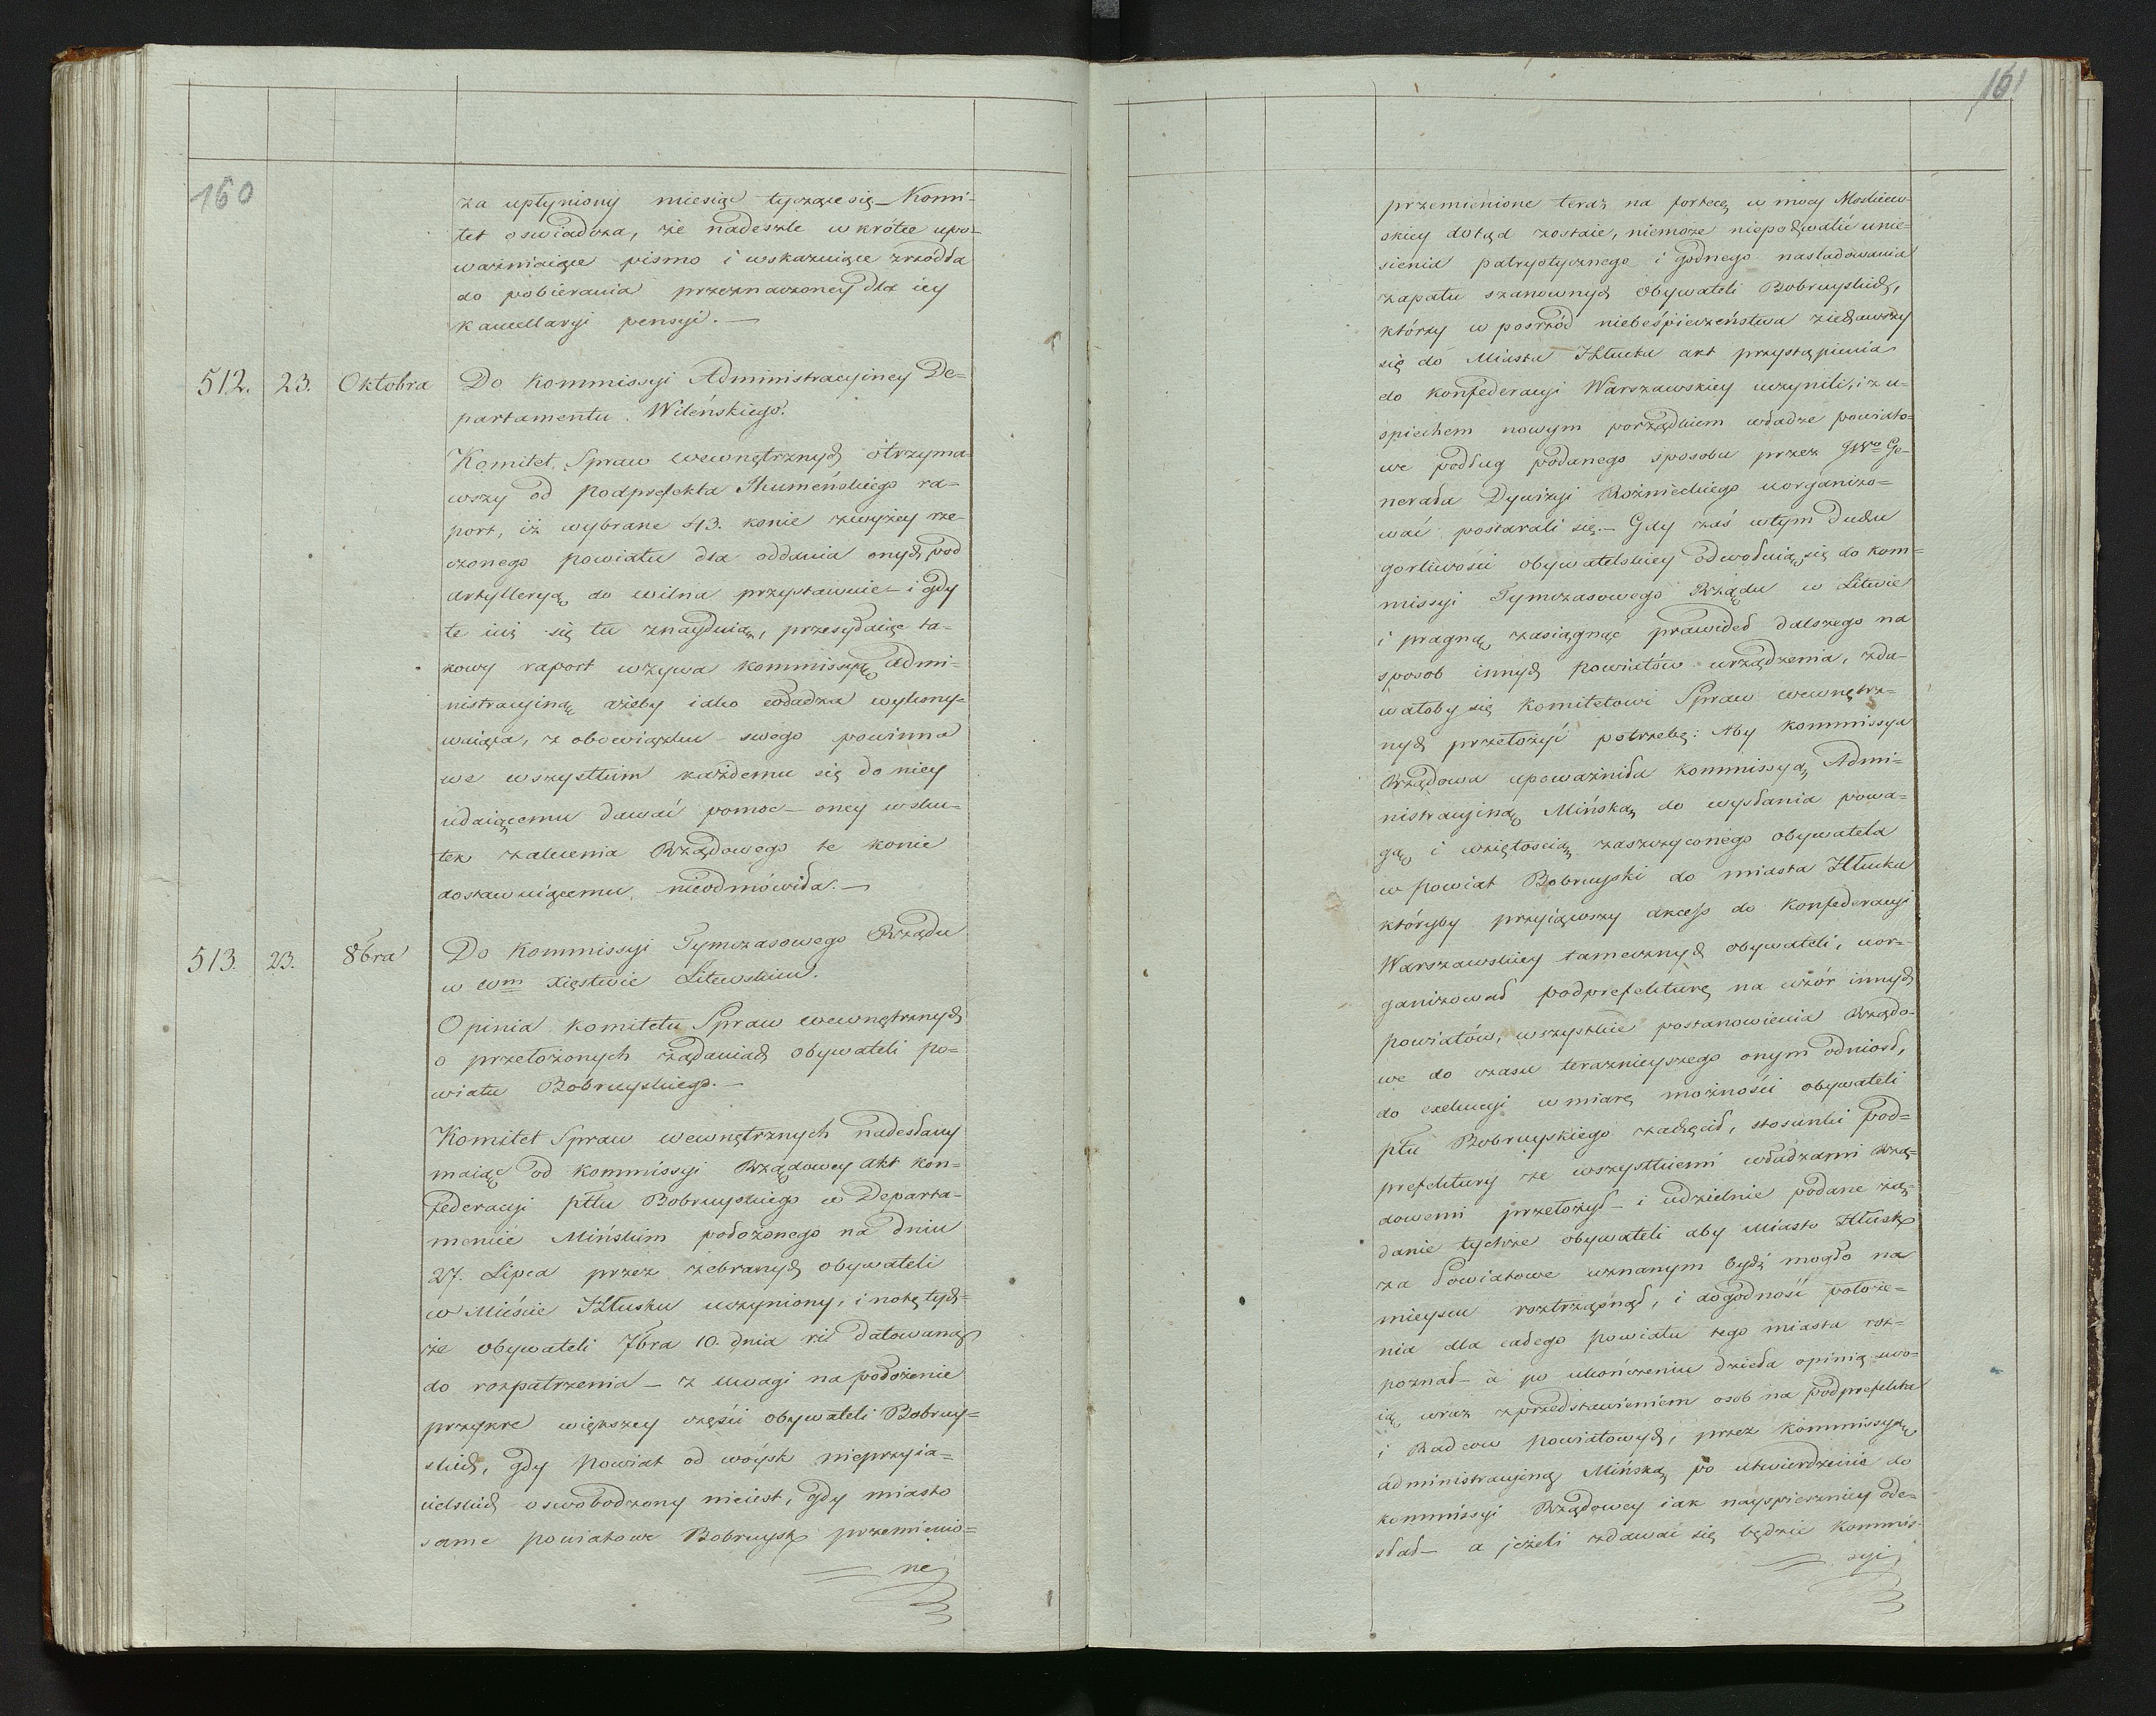 160
za upłyniony miesiąc tyczące się — Komi-
tet oświadcza, że nadeszle w krótce upo-
ważniaiące pismo i wskazuiące zrzódła
do pobierania przeznaczoney dla iey
kancellaryi pensyi. —
512. 23. Oktobra Do Kommissyi Administracyiney De-
partamentu Wileńskiego.
Komitet Spraw wewnętrznych otrzyma-
wszy od Podprefekta Ihumeńskiego ra-
port, iż wybrane 43. konie zwyżey rze-
czonego powiatu dla oddania onych pod
artylleryą do Wilna przystawuie — i gdy
te iuż się tu znayduią, przesyłaiąc ta-
kowy raport wzywa Kommissyą Admi-
nistracyiną ażeby iako władza wykony-
waiąca, z obowiązku swego powinna
we wszystkim każdemu się do niey
udaiącemu dawać pomoc — oney w sku-
tek zalecenia Rządowego te konie
dostawuiącemu nieodmówiła. —
513. 23. 8bra Do Kommissyi Tymczasowego Rządu
w Wm Xięstwie Litewskim.
Opinia Komitetu Spraw wewnętrznych
o przełożonych żądaniach obywateli po-
wiatu Bobruyskiego. —
Komitet Spraw wewnętrznych nadesłany
maiąc od Kommissyi Rządowey akt kon-
federacyi pttu Bobruyskiego w Departa-
mencie Mińskim położonego na dniu
27. Lipca przez zebranych obywateli
w Mieście Hłusku uczyniony, i notę tych-
że obywateli 7bra 10. dnia datowaną
do rozpatrzenia — z uwagi na położenie
przykre większey części obywateli Bobruy-
skich, gdy Powiat od woysk nieprzyia-
cielskich oswobodzony nieiest, gdy miasto
same powiatowe Bobruysk przemienio-
ne
161
przemienione teraz na fortecę w mocy Moskiew-
skiey dotąd zostaie, niemoże niepochwalić unie-
sienia patryotycznego i godnego nasladowania
zapału szanownych Obywateli Bobruyskich,
którzy w posrzód niebeśpieczeństwa ziechawszy
się do Miasta Hłucka akt przystąpienia
do konfederacyi Warszawskiey uczynili, i z u-
spiechem nowym porządkiem władze powiato-
we podług podanego sposobu przez JWo Ge-
nerała Dywizyi Rożnieckiego uorganizo-
wać postarali się. — Gdy zaś w tym duchu
gorliwości obywatelskiey odwołuią się do Kom-
missyi Tymczasowego Rządu w Litwie
i pragną zasiągnąć prawideł dalszego na
sposob innych Powiatów urządzenia, zda-
wałoby się Komitetowi Spraw wewnętrz-
nych przełożyć potrzebę: Aby Kommissya
Rządowa upoważniła Kommissyą Admi-
nistracyiną Mińską do wysłania powa-
gą i wziętością zaszczyconego obywatela
w powiat Bobruyski do miasta Hłucka
któryby przyiąwszy akces do Konfederacyi
Warszawskiey tamecznych obywateli, uor-
ganizował podprefekturę na wzór innych
powiatów, wszystkie postanowienia Rządo-
we do czasu teraznieyszego onym odniosł,
do exekucyi w miarę możności obywateli
pttu Bobruyskiego zachęcił, stosunki pod-
prefektury ze wszystkiemi władzami Rzą-
dowemi przełożył — i udzielnie podane żą-
danie tychże obywateli aby Miasto Hłusk
za Powiatowe uznanym bydź mogło na
mieyscu roztrząsnął, i dogodność położe-
nia dla całego Powiatu tego miasta roz-
poznał — a po ukończeniu dzieła opinią swo-
ią wraz z przedstawieniem osob na podprefekta
i Radców Powiatowych, przez Kommissyą
administracyiną Mińską po utwierdzenie do
Kommissyi Rządowey iak nayspieszniey ode-
słał — a jeżeli zdawać się będzie Kommis-
syi